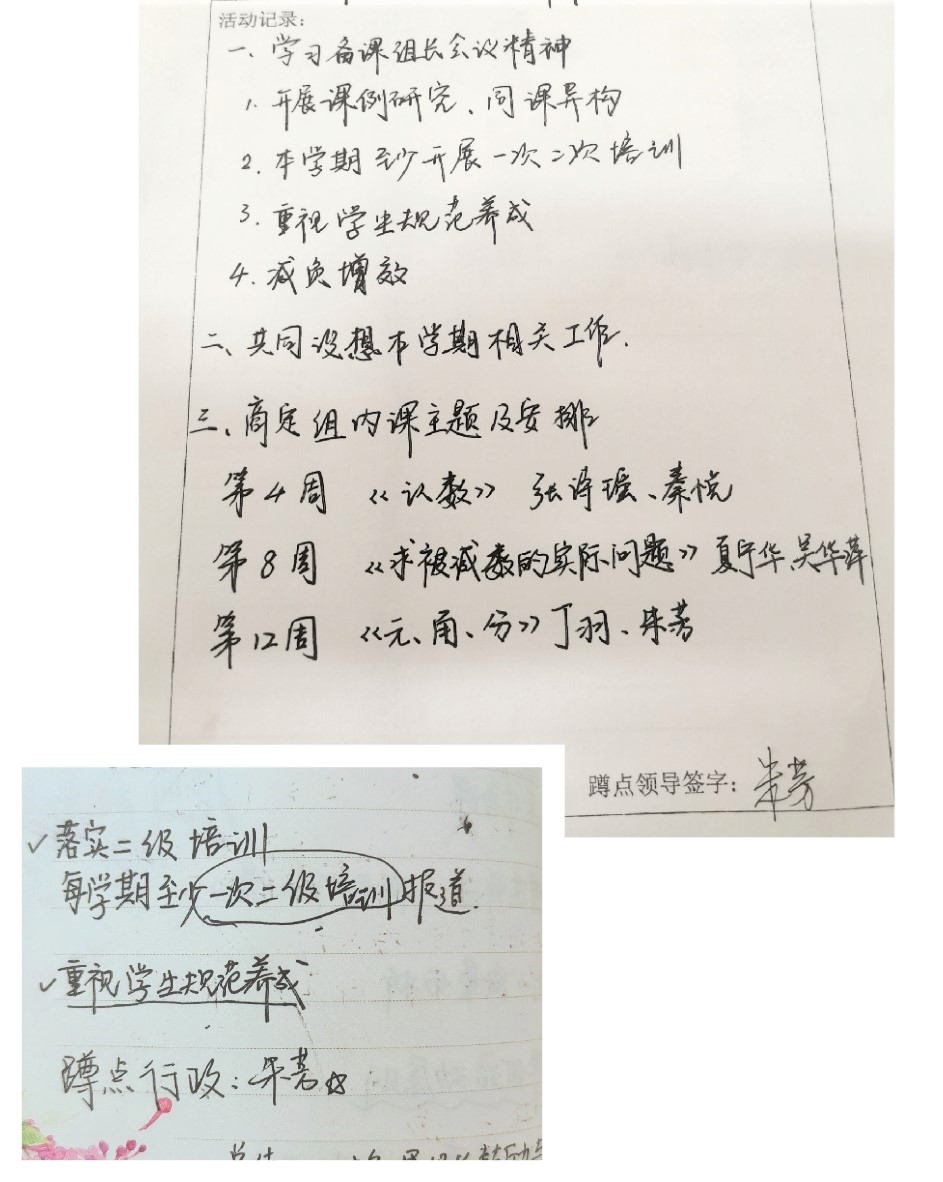 活动记录：
一、学习备课组长会议精神
1. 开展课例研究、同课异构
2. 本学期至少开展一次二次培训
3. 重视学生规范养成
4. 减负增效
二、共同设想本学期相关工作.
三、商定组内课主题及安排
第4周 《认数》 张诗瑶、秦悦
第8周 《求被减数的实际问题》夏宁华、吴华萍
第12周 《元、角、分》丁羽、朱芳
蹲点领导签字：朱芳
✓落实二级培训
每学期至少一次二级培训报道.
✓重视学生规范养成
蹲点行政：朱芳